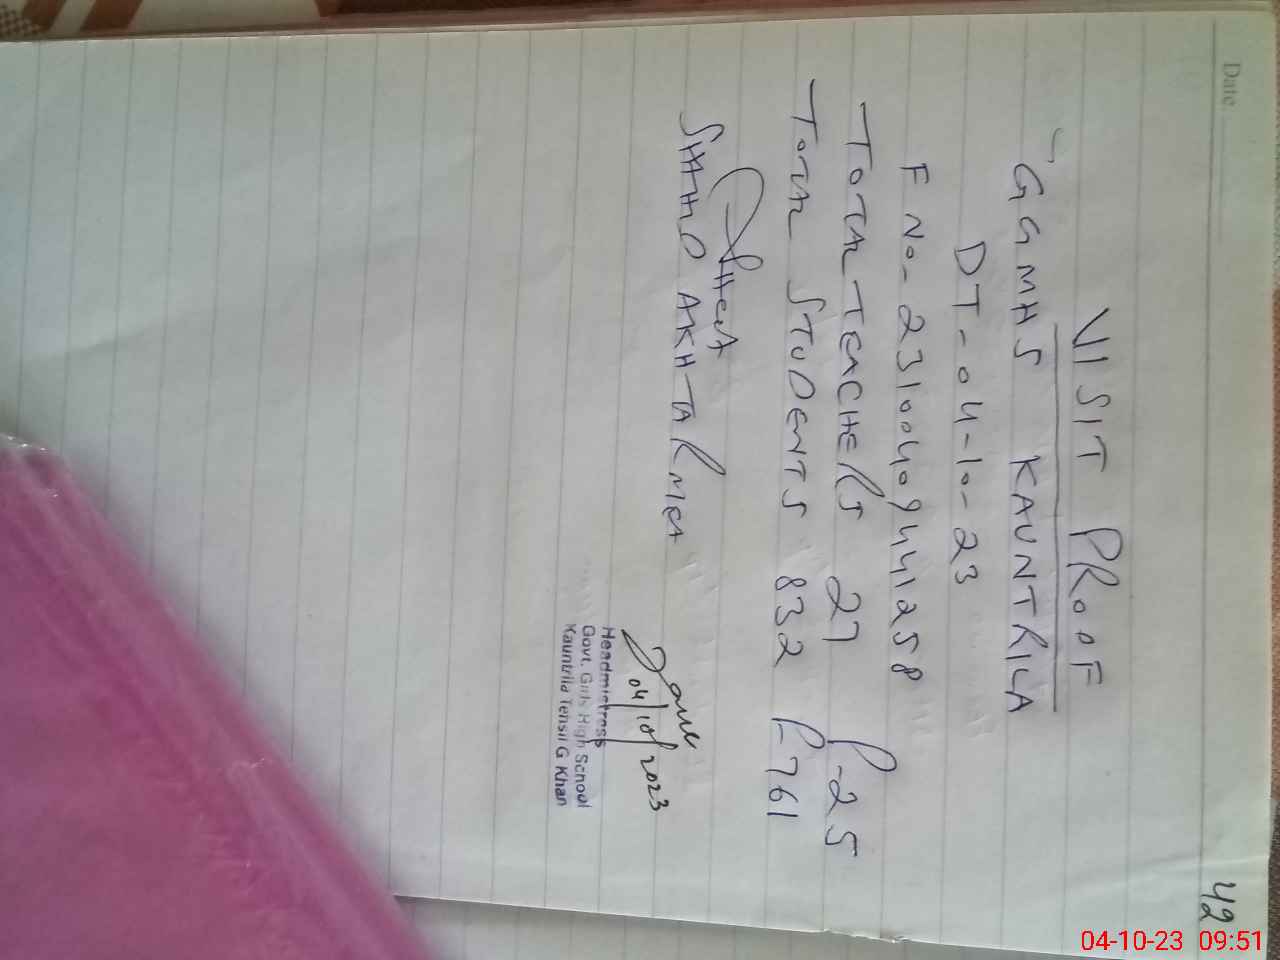 Date:
42
VISIT PROOF
GGMHS KAUNTRILA
DT-04-10-23
F No- 23100409441258
TOTAL TEACHERS 27 P-25
TOTAL STUDENTS 832 P-761
SHAHID AKHTAR MEA
04/10/2023
Headmistress
Govt. Girls High School
Kauntrila Tehsil G Khan
04-10-23 09:51